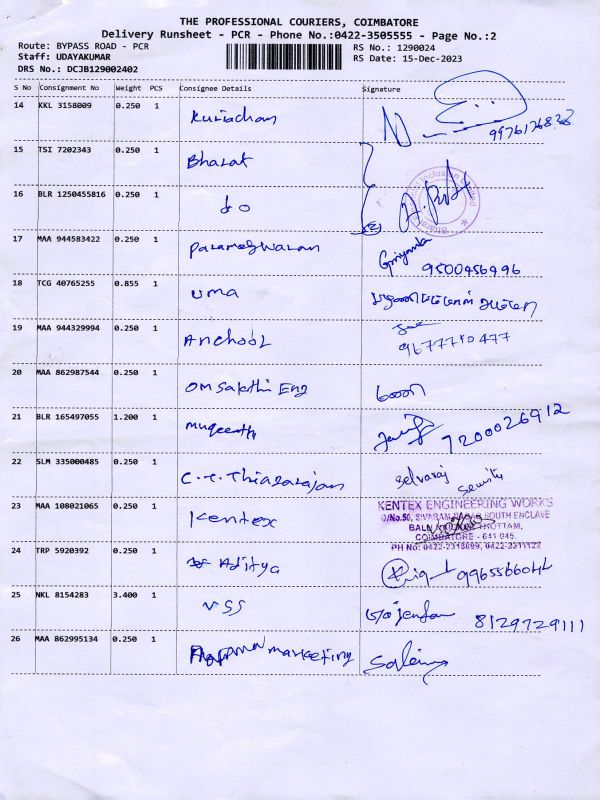 THE PROFESSIONAL COURIERS, COIMBATORE
Delivery Runsheet - PCR - Phone No.:0422-3505555 - Page No.:2
Route: BYPASS ROAD - PCR
RS No.: 1290024
Staff: UDAYAKUMAR
RS Date: 15-Dec-2023
DRS No.: DCJB129002402
S No Consignment No Weight PCS Consignee Details Signature
14 KKL 3158009 0.250 1 Kuriachan
15 TSI 7202343 0.250 1 Bharat
16 BLR 1250455816 0.250 1 do
17 MAA 944583422 0.250 1 Parameswaran
9500456496
18 TCG 40765255 0.855 1 uma
19 MAA 944329994 0.250 1 Anchool
20 MAA 862987544 0.250 1 OM Sakthi Eng
21 BLR 165497055 1.200 1 muqeeth
7200026912
22 SLM 335000485 0.250 1 C.T. Thiagarajan Selvaraj
Security
23 MAA 108021065 0.250 1 Kentex
KENTEX ENGINEERING WORKS
SOUTH ENCLAVE
COIMBATORE - 641 045.
PH No: 0422-2318699, 0422-2311122
24 TRP 5920392 0.250 1 Aditya
25 NKL 8154283 3.400 1 VSS
8129729111
26 MAA 862995134 0.250 1 marketing